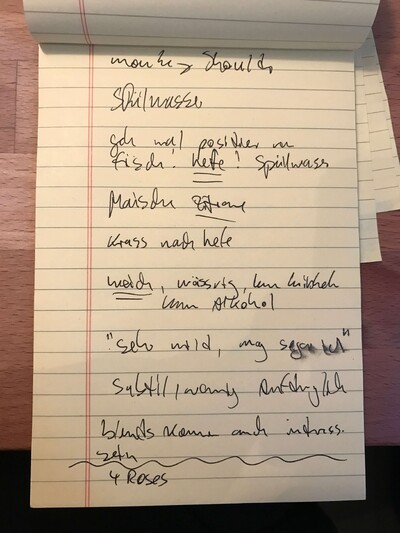 monkey Shoulder
Spülwasser
geh mal positiver ran
Fisch! Hefe! Spülwass
Maische Zitrone
Krass nach hefe
weich, wässrig, kaum
kaum Alkohol
"Sehr mild, mag
Subtil, wenig Aufdringlich
blends können auch intress.
sein
4 Roses